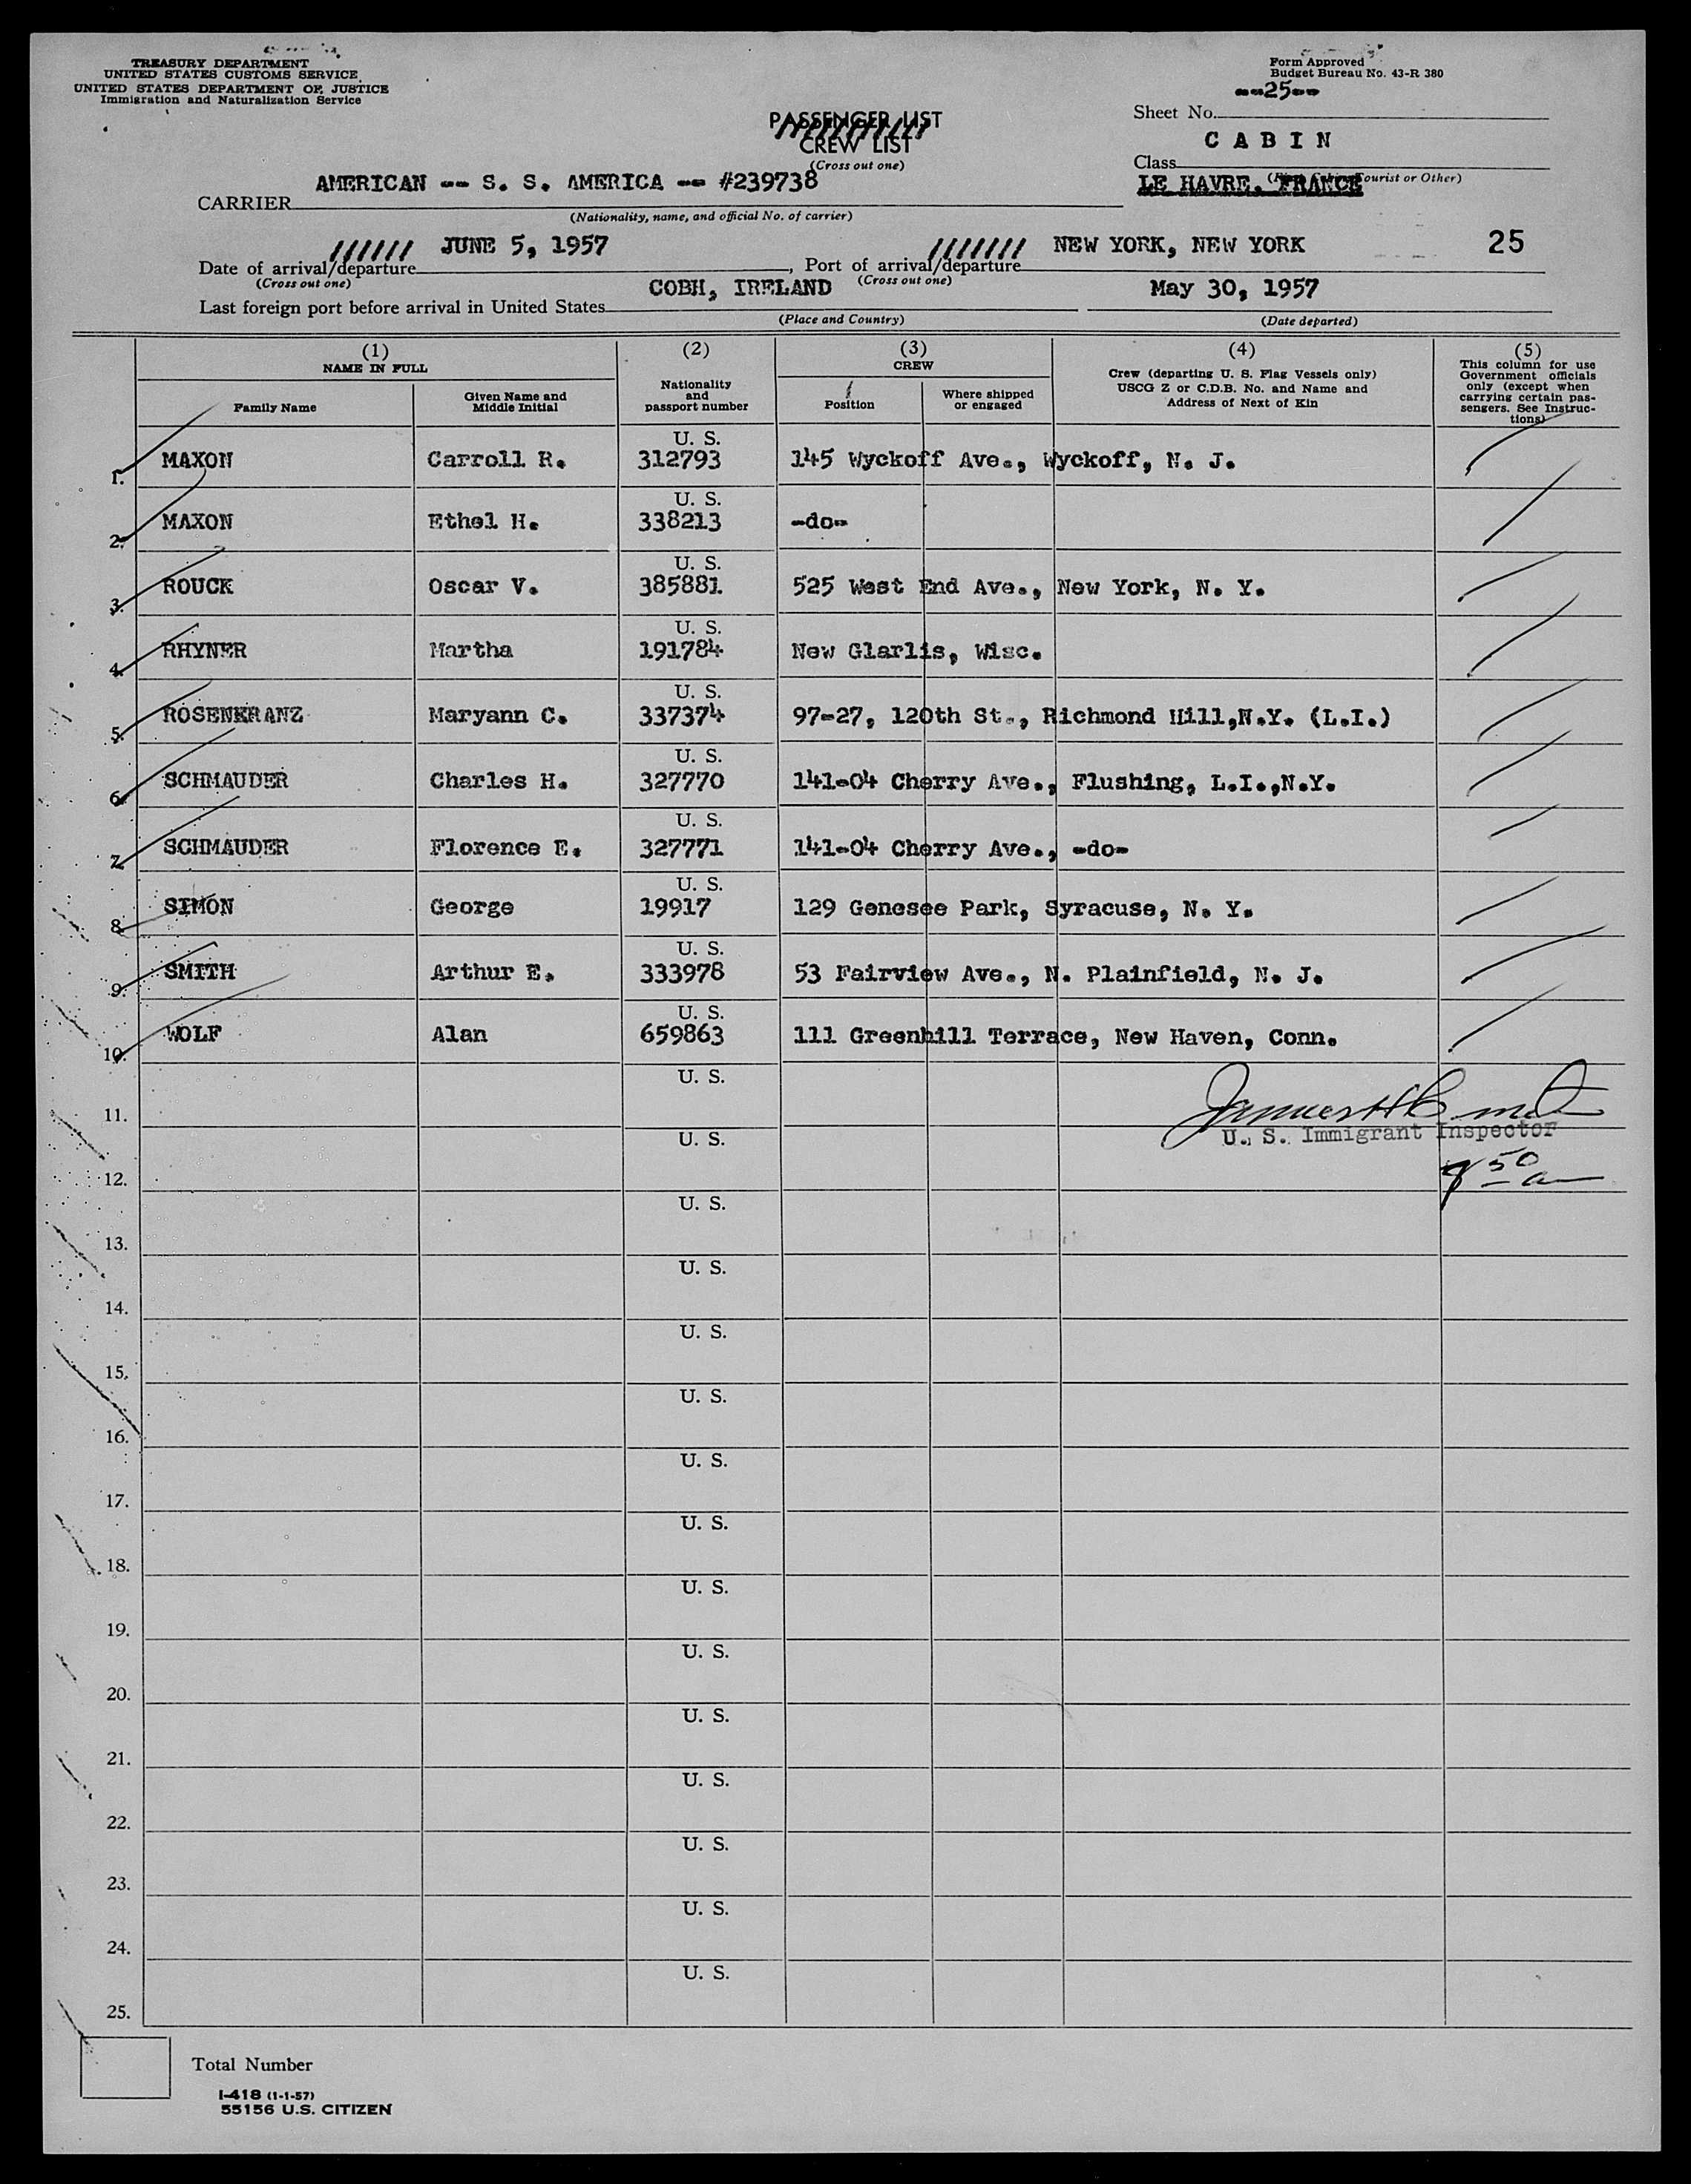 TREASURY DEPARTMENT
UNITED STATES CUSTOMS SERVICE
UNITED STATES DEPARTMENT OF JUSTICE
Immigration and Naturalization Service
Form Approved
Budget Bureau No. 43-R 380
--25--
Sheet No.
PASSENGER LIST
CREW LIST
(Cross out one)
C A B I N
Class
Tourist or Other)
LE HAVRE, FRANCE
AMERICAN -- S. S. AMERICA -- #239738
CARRIER
(Nationality, name, and official No. of carrier)
JUNE 5, 1957
NEW YORK, NEW YORK
25
Date of arrival/departure
, Port of arrival/departure
(Cross out one)
(Cross out one)
COBH, IRELAND
May 30, 1957
Last foreign port before arrival in United States
(Place and Country)
(Date departed)
(1)
NAME IN FULL
Family Name
Given Name and
Middle Initial
(2)
Nationality
and
passport number
(3)
CREW
Position
Where shipped
or engaged
(4)
Crew (departing U. S. Flag Vessels only)
USCG Z or C.D.B. No. and Name and
Address of Next of Kin
(5)
This column for use
Government officials
only (except when
carrying certain pas-
sengers. See Instruc-
tions)
U. S.
1. MAXON Carroll R. 312793 145 Wyckoff Ave., Wyckoff, N. J.
U. S.
2. MAXON Ethel H. 338213 -do-
U. S.
3. ROUCK Oscar V. 385881 525 West End Ave., New York, N. Y.
U. S.
4. RHYNER Martha 191784 New Glarlis, Wisc.
U. S.
5. ROSENKRANZ Maryann C. 337374 97-27, 120th St., Richmond Hill,N.Y. (L.I.)
U. S.
6. SCHMAUDER Charles H. 327770 141-04 Cherry Ave., Flushing, L.I.,N.Y.
U. S.
7. SCHMAUDER Florence E. 327771 141-04 Cherry Ave., -do-
U. S.
8. SIMON George 19917 129 Genesee Park, Syracuse, N. Y.
U. S.
9. SMITH Arthur E. 333978 53 Fairview Ave., N. Plainfield, N. J.
U. S.
10. WOLF Alan 659863 111 Greenhill Terrace, New Haven, Conn.
U. S.
11.
U. S. Immigrant Inspector
U. S.
12.
50
U. S.
13.
U. S.
14.
U. S.
15.
U. S.
16.
U. S.
17.
U. S.
18.
U. S.
19.
U. S.
20.
U. S.
21.
U. S.
22.
U. S.
23.
U. S.
24.
U. S.
25.
Total Number
I-418 (1-1-57)
55156 U.S. CITIZEN